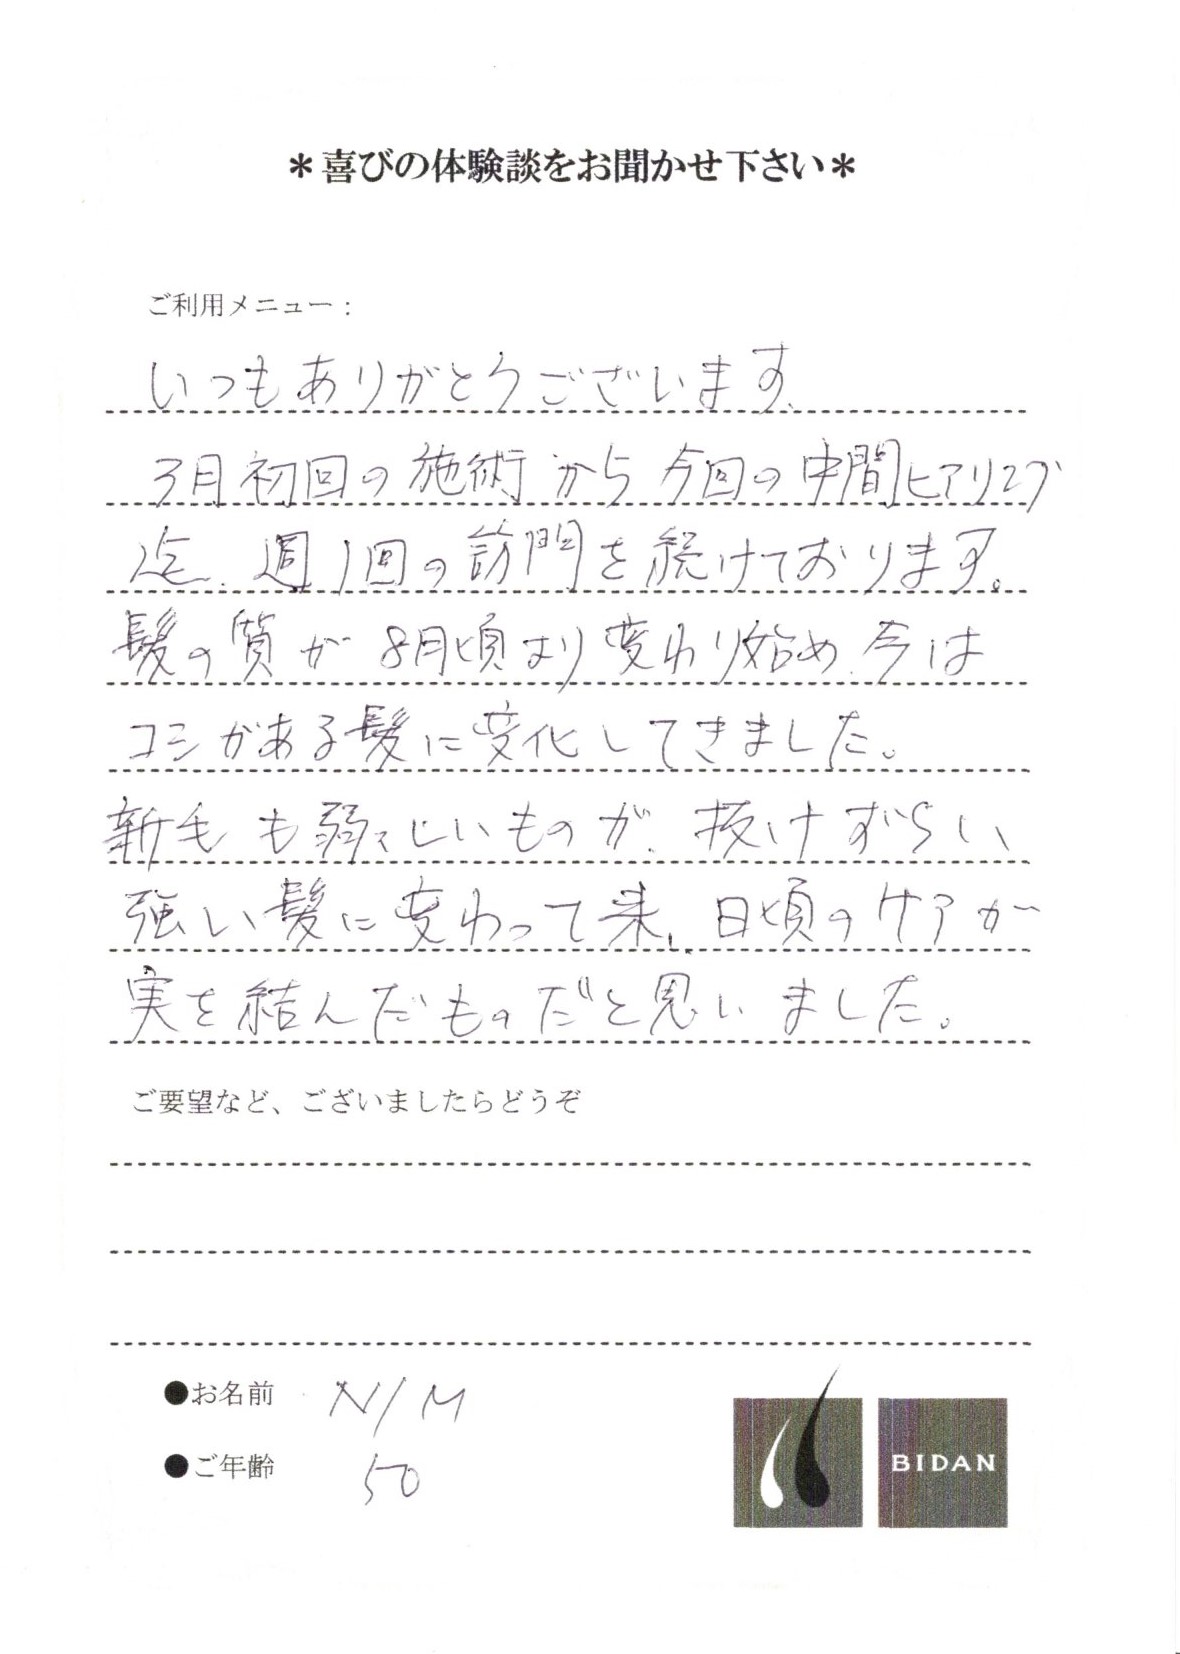 ＊喜びの体験談をお聞かせ下さい＊
ご利用メニュー：
いつもありがとうございます、
3月初回の施術から今回の中間ヒアリング
迄、週1回の訪問を続けております。
髪の質が8月頃より変わり始め、今は
コシがある髪に変化してきました。
新毛も弱々しいものが、抜けずらい、
強い髪に変わって来、日頃のケアが
実を結んだものだと思いました。
ご要望など、ございましたらどうぞ
●お名前 N/M
●ご年齢 50
BIDAN